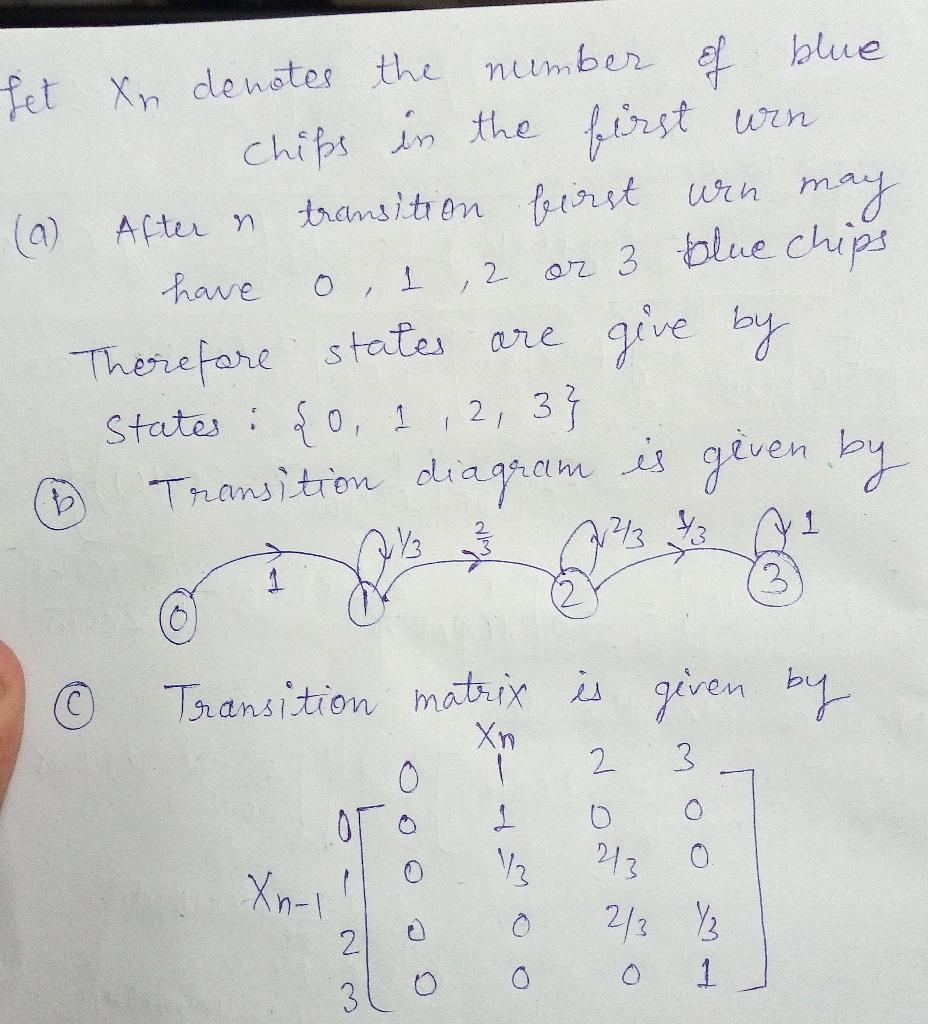 Let Xn denotes the number of blue
chips in the first urn
(a) After n transition first urn may
have 0, 1, 2 or 3 blue chips
Therefore states are give by
States : {0, 1, 2, 3}
(b) Transition diagram is given by
1/3 2/3 2/3 1/3 1
0 1 1 2 3
(c) Transition matrix is given by
Xn
0 1 2 3
0 0 1 0 0
1 0 1/3 2/3 0
Xn-1
2 0 0 2/3 1/3
3 0 0 0 1